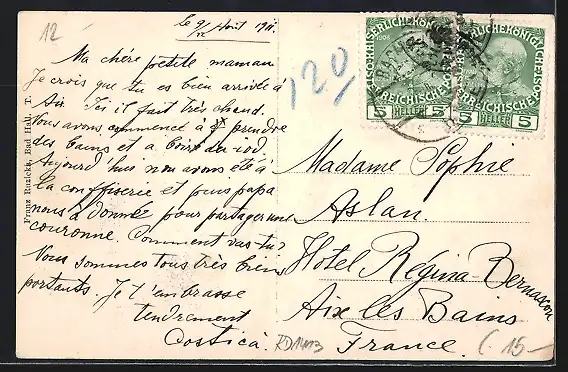 12
le 9/12 Août 1911.
Ma chère petite maman
Je crois que tu es bien arrivée à
Aix. Ici il fait très cheud.
Nous avons commencé à prendre
des bains et à boire du iod.
Aujourd'hui nou avons été à
la confiserie et puis papa
nous à donnée pour partager une
couronne. Comment vas-tu?
Nous sommes tous très bien
portants. Je t'embrasse
tendrement
Costică
120
Madame Sophie
Aslan.
Hotel Regina-Bernascon
Aix les Bains
France.
Franz Ruzicka, Bad Hall, T.
KAISERLICHE KÖNIGL
OESTERREICHISCHE
5 HELLER 5
KAISERLICHE KÖNIGL
OESTERREICHISCHE
5 HELLER 5
BAD HALL
RD1413
15-